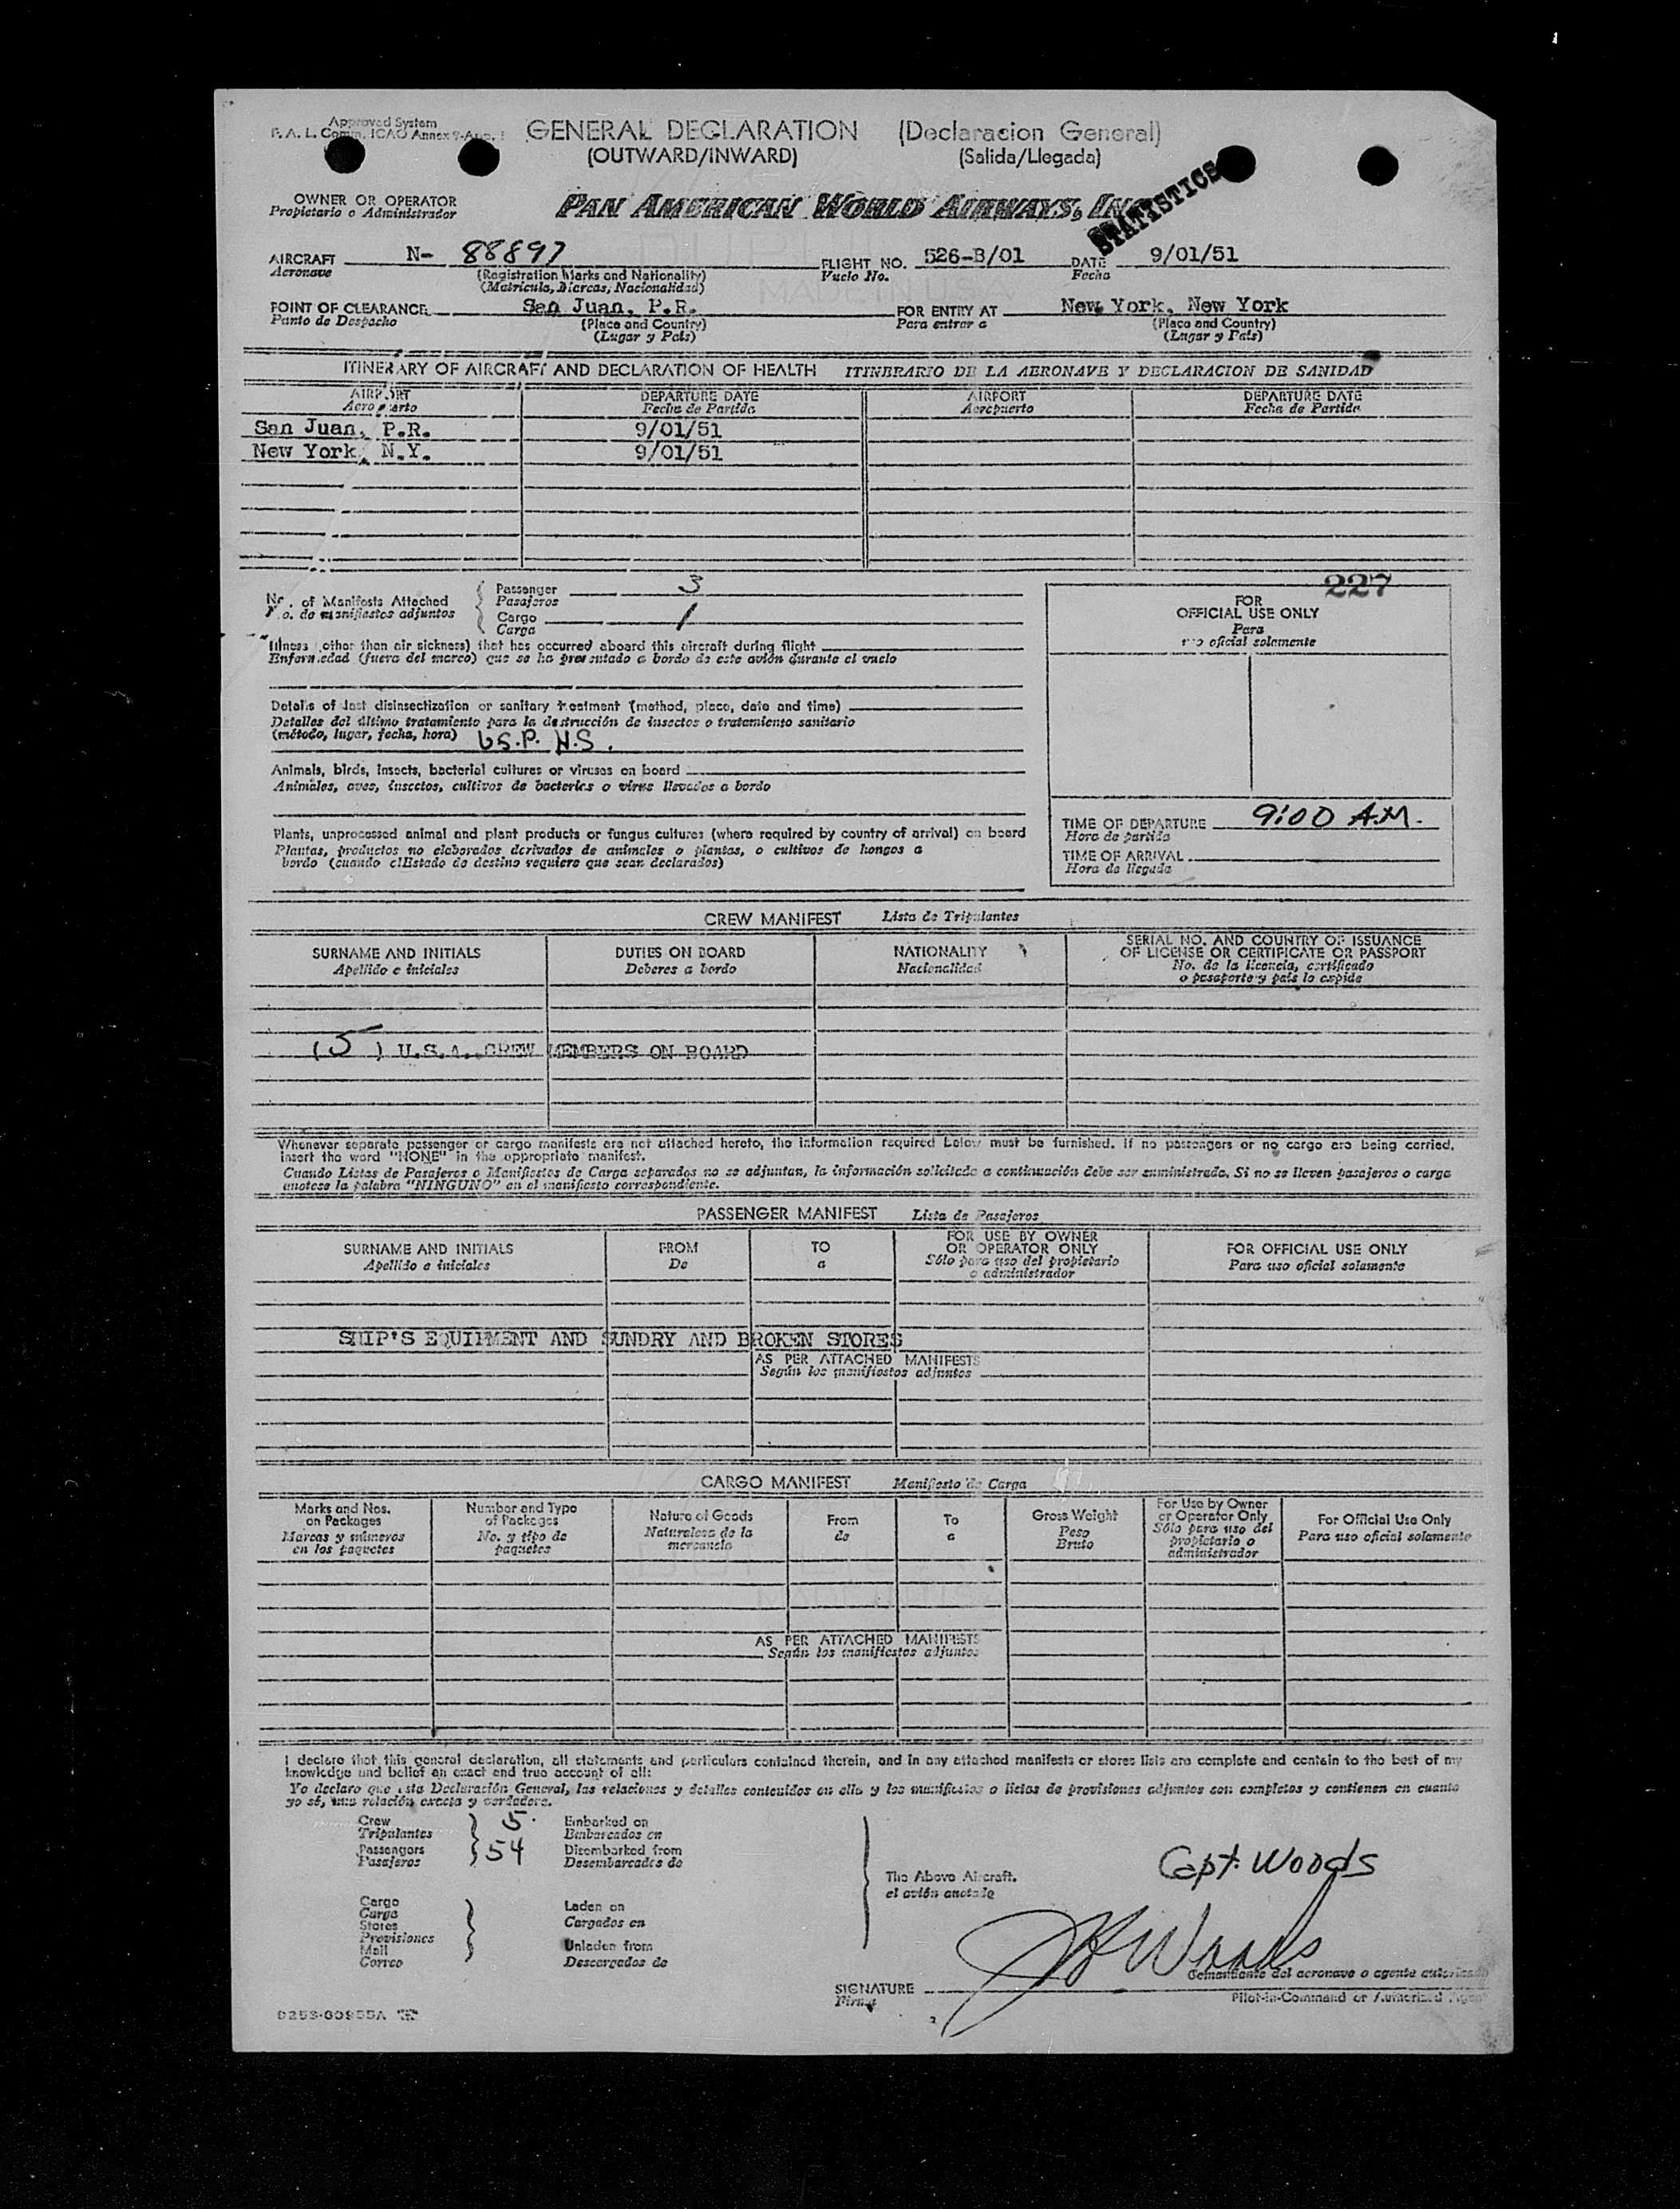 Approved System
F. A. L. Comm. ICAO Annex 9-App. 1
GENERAL DECLARATION (Declaracion General)
(OUTWARD/INWARD) (Salida/Llegada)
STATISTICS
OWNER OR OPERATOR
Propietario o Administrador
PAN AMERICAN WORLD AIRWAYS, INC.
AIRCRAFT N- 88897 FLIGHT NO. 526-B/01 DATE 9/01/51
Aeronave (Registration Marks and Nationality) Vuelo No. Fecha
(Matricula, Marcas, Nacionalidad)
POINT OF CLEARANCE San Juan, P.R. FOR ENTRY AT New York, New York
Punto de Despacho (Place and Country) Para entrar a (Place and Country)
(Lugar y País) (Lugar y País)
ITINERARY OF AIRCRAFT AND DECLARATION OF HEALTH ITINERARIO DE LA AERONAVE Y DECLARACION DE SANIDAD
AIRPORT DEPARTURE DATE AIRPORT DEPARTURE DATE
Aeropuerto Fecha de Partida Aeropuerto Fecha de Partida
San Juan, P.R. 9/01/51
New York, N.Y. 9/01/51
227
No. of Manifests Attached
No. de manifiestos adjuntos
Passenger 3
Pasajeros
Cargo 1
Carga
FOR
OFFICIAL USE ONLY
Para
uso oficial solamente
Illness (other than air sickness) that has occurred aboard this aircraft during flight
Enfermedad (fuera del mareo) que se ha presentado a bordo de este avión durante el vuelo
Details of last disinsectization or sanitary treatment (method, place, date and time)
Detalles del último tratamiento para la destrucción de insectos o tratamiento sanitario
(método, lugar, fecha, hora) U.S.P.H.S.
Animals, birds, insects, bacterial cultures or viruses on board
Animales, aves, insectos, cultivos de bacterias o virus llevados a bordo
Plants, unprocessed animal and plant products or fungus cultures (where required by country of arrival) on board
Plantas, productos no elaborados derivados de animales o plantas, o cultivos de hongos a
bordo (cuando elEstado de destino requiere que sean declarados)
TIME OF DEPARTURE 9:00 A.M.
Hora de partida
TIME OF ARRIVAL
Hora de llegada
CREW MANIFEST Lista de Tripulantes
SURNAME AND INITIALS DUTIES ON BOARD NATIONALITY SERIAL NO. AND COUNTRY OF ISSUANCE
OF LICENSE OR CERTIFICATE OR PASSPORT
Apellido e iniciales Deberes a bordo Nacionalidad No. de la licencia, certificado
o pasaporte y país lo expide
(5) U.S.A. CREW MEMBERS ON BOARD
Whenever separate passenger or cargo manifests are not attached hereto, the information required below must be furnished. If no passengers or no cargo are being carried,
insert the word "NONE" in the appropriate manifest.
Cuando Listas de Pasajeros o Manifiestos de Carga separados no se adjuntan, la información solicitada a continuación debe ser suministrada. Si no se lleven pasajeros o carga
anotese la palabra "NINGUNO" en el manifiesto correspondiente.
PASSENGER MANIFEST Lista de Pasajeros
SURNAME AND INITIALS FROM TO FOR USE BY OWNER
OR OPERATOR ONLY FOR OFFICIAL USE ONLY
Apellido e iniciales De a Sólo para uso del propietario
o administrador Para uso oficial solamente
SHIP'S EQUIPMENT AND SUNDRY AND BROKEN STORES
AS PER ATTACHED MANIFESTS
Según los manifiestos adjuntos
CARGO MANIFEST Manifiesto de Carga
Marks and Nos.
on Packages
Marcas y números
en los paquetes
Number and Type
of Packages
No. y tipo de
paquetes
Nature of Goods
Naturaleza de la
mercancía
From
de
To
a
Gross Weight
Peso
Bruto
For Use by Owner
or Operator Only
Sólo para uso del
propietario o
administrador
For Official Use Only
Para uso oficial solamente
AS PER ATTACHED MANIFESTS
Según los manifiestos adjuntos
I declare that this general declaration, all statements and particulars contained therein, and in any attached manifests or stores lists are complete and contain to the best of my
knowledge and belief an exact and true account of all:
Yo declaro que esta Declaración General, las relaciones y detalles contenidos en ella y los manifiestos o listas de provisiones adjuntos son completos y contienen en cuanto
yo sé, una relación exacta y verdadera.
Crew 5. Embarked on
Tripulantes Embarcados en
Passengers 54 Disembarked from
Pasajeros Desembarcados de
The Above Aircraft.
el avión anotado
Capt. Woods
Cargo
Carga
Stores
Provisiones
Mail
Correo
Laden on
Cargados en
Unladen from
Descargados de
Comandante del aeronave o agente autorizado
SIGNATURE
Firma
Pilot-in-Command or Authorized Agent